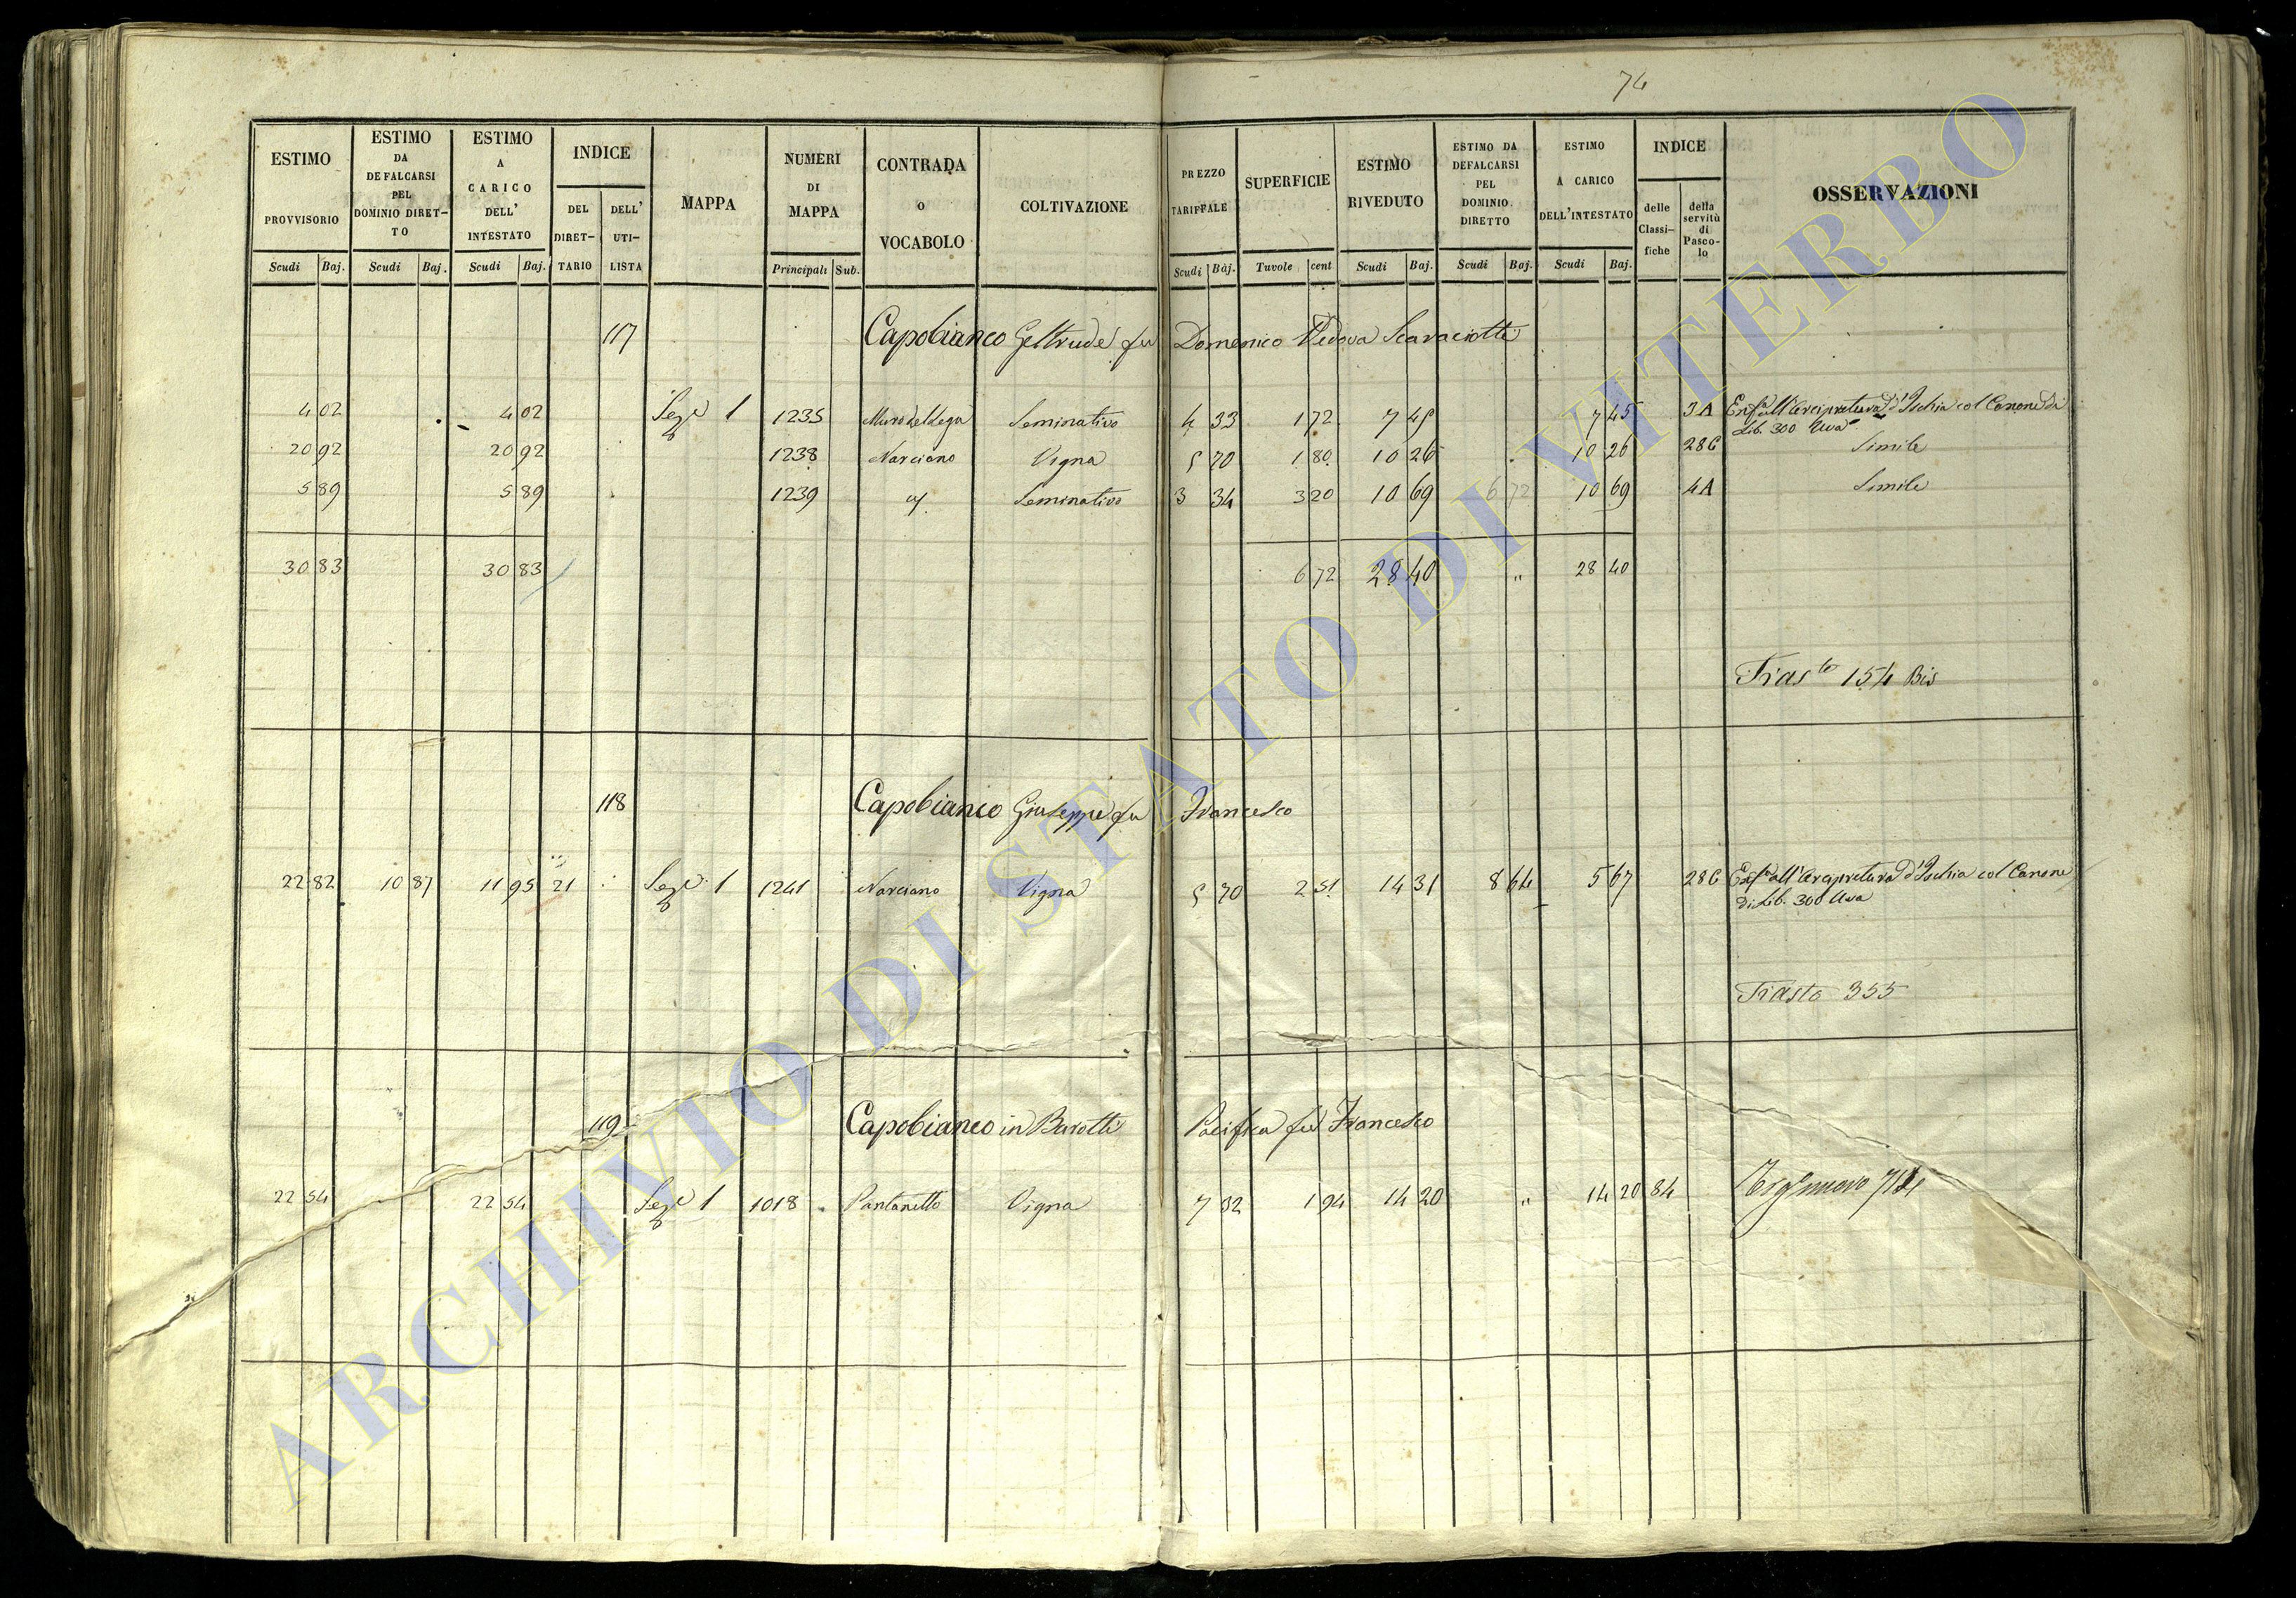 74
ESTIMO PROVVISORIO Scudi Baj.
ESTIMO DA DEFALCARSI PEL DOMINIO DIRET-TO Scudi Baj.
ESTIMO A CARICO DELL' INTESTATO Scudi Baj.
INDICE DEL DIRET-TARIO DELL' UTI-LISTA
MAPPA
NUMERI DI MAPPA Principali Sub.
CONTRADA O VOCABOLO
COLTIVAZIONE
PREZZO TARIFFALE Scudi Baj.
SUPERFICIE Tavole cent
ESTIMO RIVEDUTO Scudi Baj.
ESTIMO DA DEFALCARSI PEL DOMINIO DIRETTO Scudi Baj.
ESTIMO A CARICO DELL'INTESTATO Scudi Baj.
INDICE delle Classi-fiche della servitù di Pasco-lo
OSSERVAZIONI
117 Capobianco Geltrude fu Domenico Vedova Scaraciotti
4 02 4 02 Sez.e 1 1235 Seminativo 4 33 1 72 7 45 7 45 3A Enf.a all'Arcipretura d'Ischia col Canone di
Lib. 300 Uva
20 92 20 92 1238 Narciano Vigna 5 70 1 80 10 26 10 26 28C Simile
5 89 5 89 1239 Seminativo 3 34 3 20 10 69 6 72 10 69 4A Simile
30 83 30 83 6 72 28 40 " 28 40
Trasto 154 Bis
118 Capobianco Giuseppe fu Francesco
22 82 10 87 11 95 21 Sez.e 1 1241 Narciano Vigna 5 70 2 51 14 31 8 64 5 67 28C Enf.a all'Arcipretura d'Ischia col Canone
di Lib. 300 Uva
Trasto 355
119 Capobianco in Barotti Pacifica fu Francesco
22 54 22 54 Sez.e 1 1018 Pantanetto Vigna 7 32 1 94 14 20 " 14 20 84 nuovo
ARCHIVIO DI STATO DI VITERBO